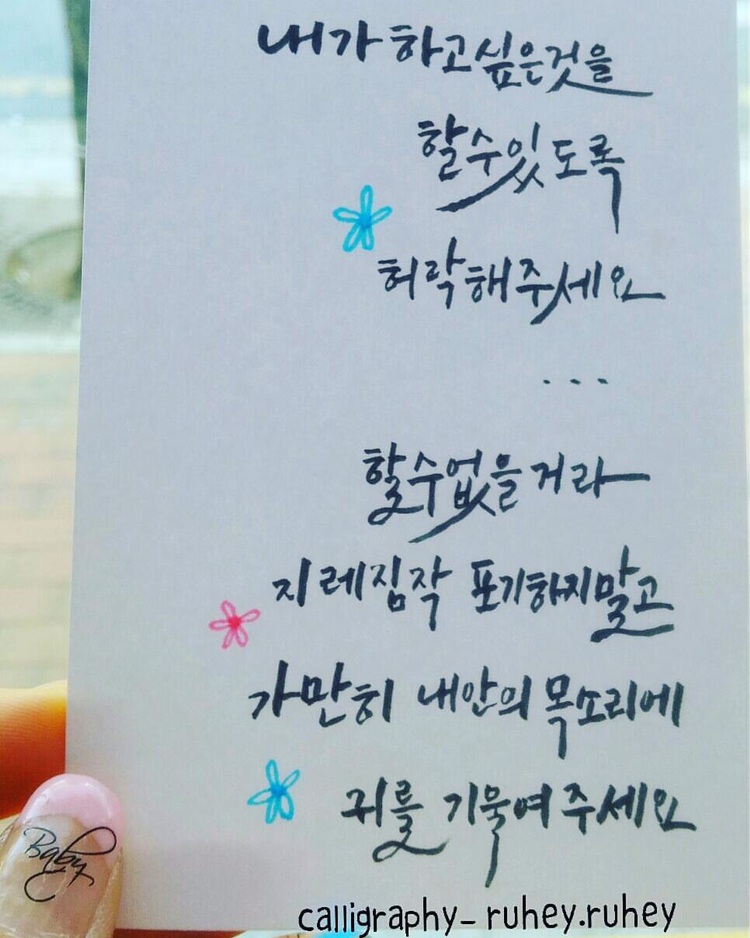 내가 하고싶은것을
할수있도록
허락해주세요
...
할수없을거라
지레짐작 포기하지말고
가만히 내안의 목소리에
귀를 기울여주세요
Baby
calligraphy_ ruhey.ruhey